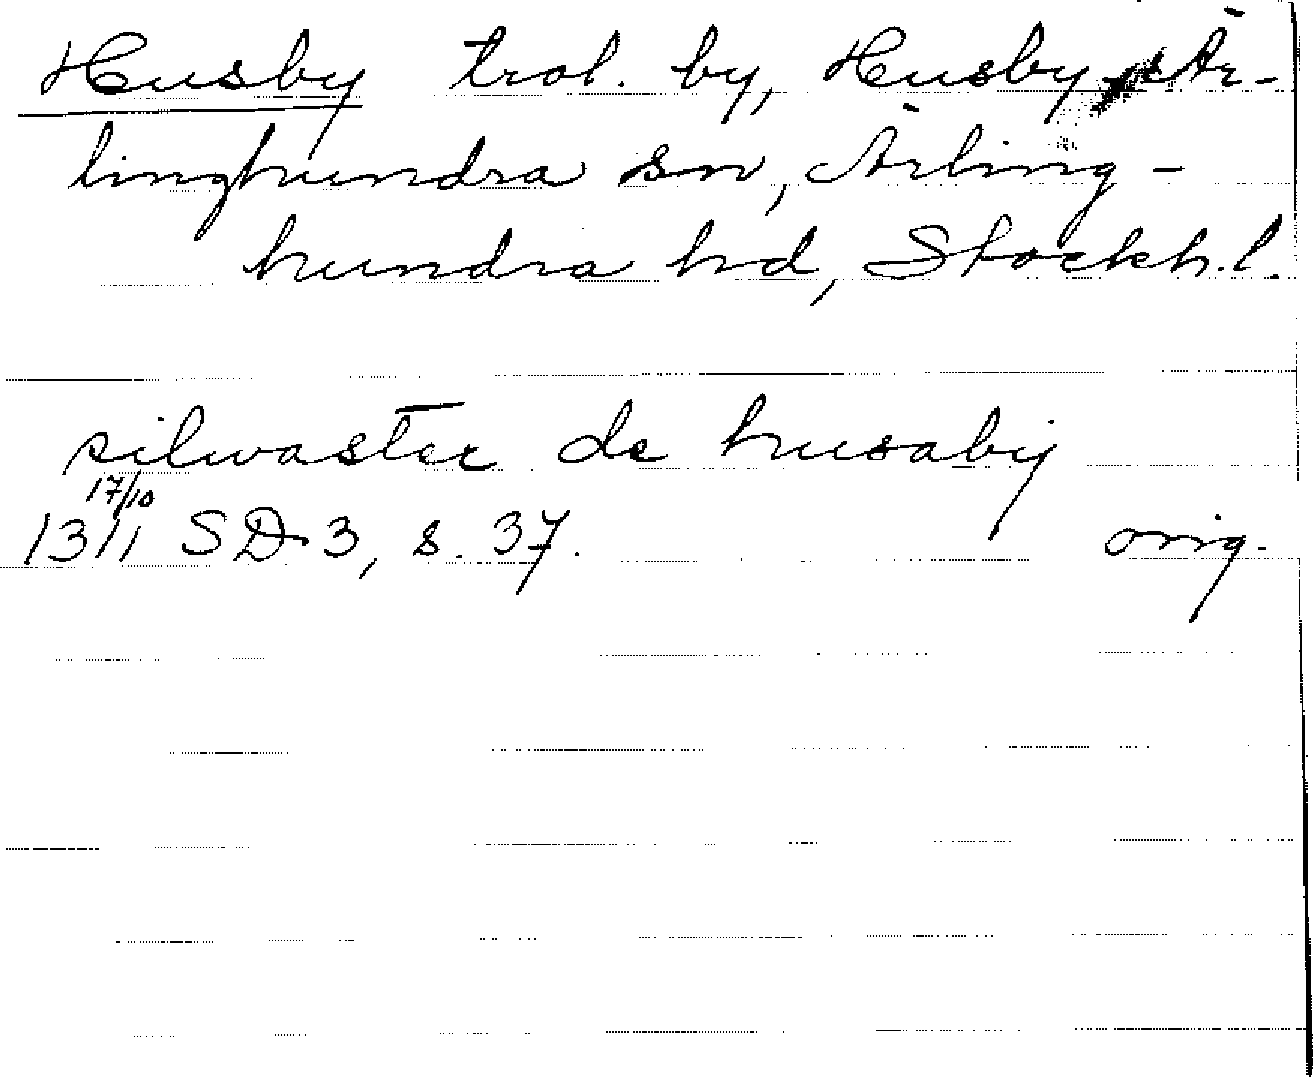 Husby trol. by, Husby-Är-
linghundra sn, Ärling-
hundra hd, Stockh. l.
silwaster de husaby
17/10
1311 SD 3, s. 37. orig.